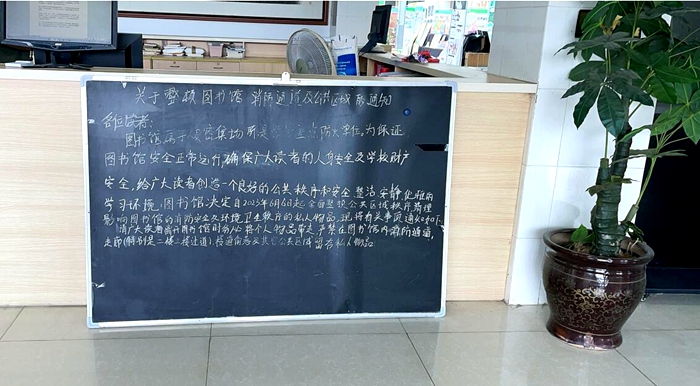 关于整顿图书馆消防通道及公共区域的通知
各位读者:
图书馆属于 密集场所 防火单位,为保证
图书馆安全正常运行,确保广大读者的人身安全及学校财产
安全,给广大读者创造一个良好的公共秩序和安全、整洁、安静、优雅的
学习环境,图书馆决定自2023年6月6日起,全面整顿公共区域秩序,清理
影响图书馆的消防安全及环境卫生秩序的私人物品,现将有关事项通知如下
请广大读者离开图书馆时务必将个人物品带走,严禁在图书馆内消防通道,
走廊(特别是二楼 过道)、楼道 及其它公共区域留存私人物品